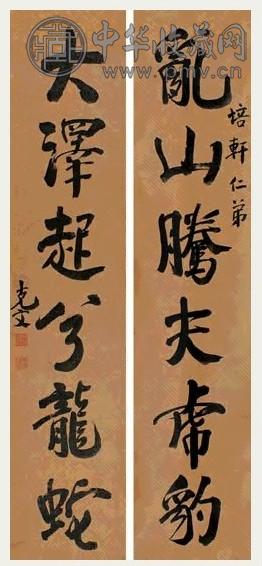 中华收藏网
培軒仁弟
亂山騰夫虎豹
大澤起兮龍蛇
克文